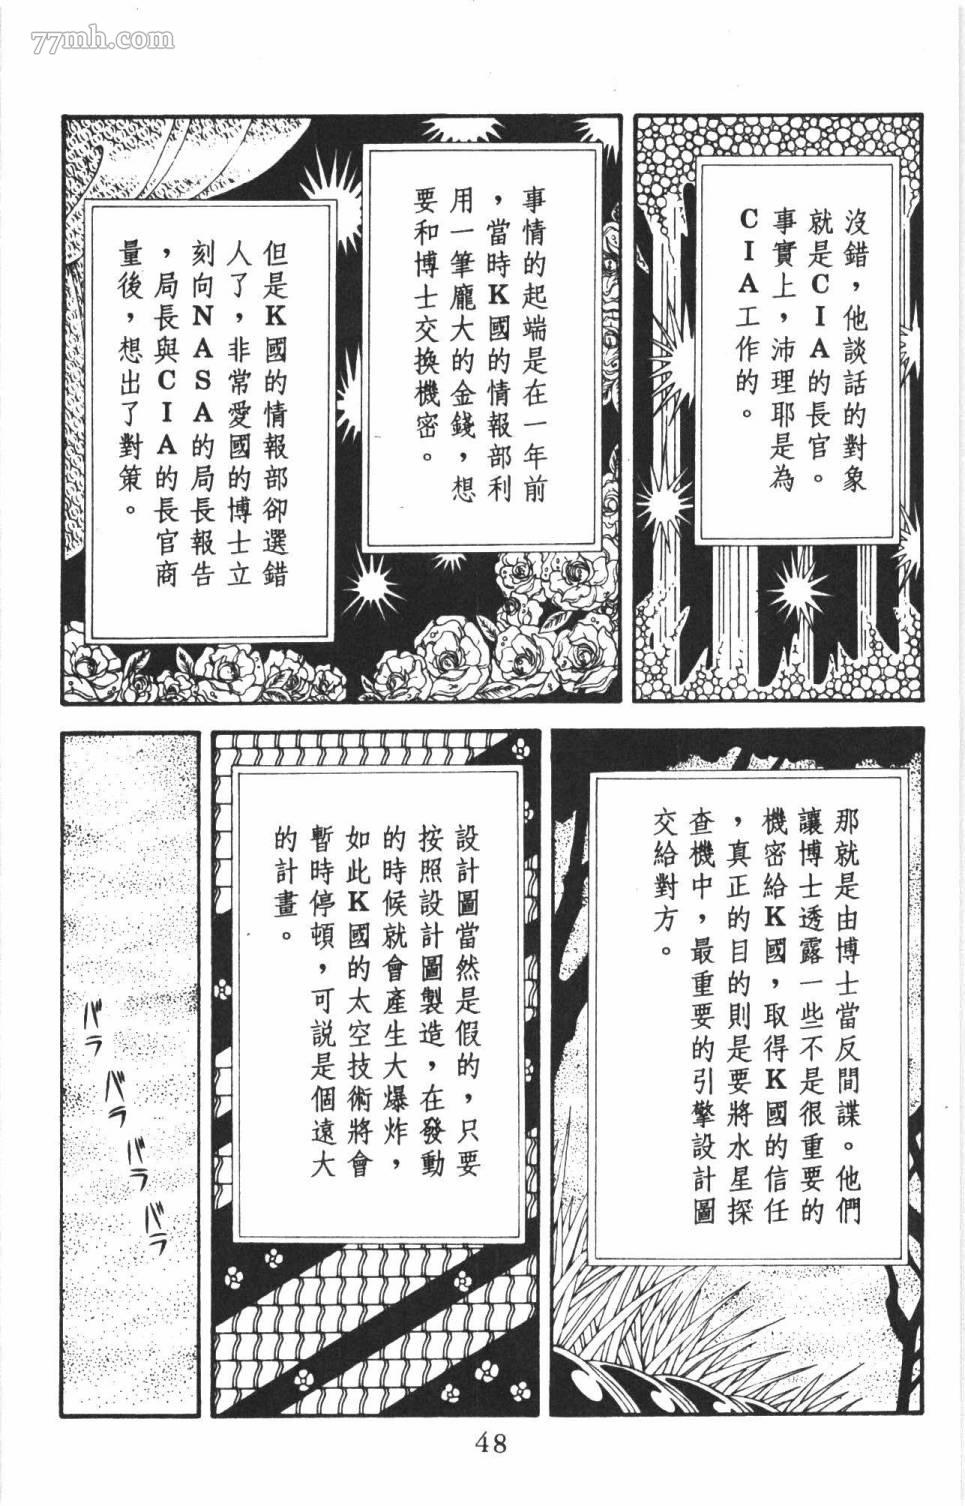 77mh.com
沒錯，他談話的對象
就是CIA的長官。
事實上，沛理耶是為
CIA工作的。
事情的起端是在一年前
，當時K國的情報部利
用一筆龐大的金錢，想
要和博士交換機密。
但是K國的情報部卻選錯
人了，非常愛國的博士立
刻向NASA的局長報告
，局長與CIA的長官商
量後，想出了對策。
那就是由博士當反間諜。他們
讓博士透露一些不是很重要的
機密給K國，取得K國的信任
，真正的目的則是要將水星探
查機中，最重要的引擎設計圖
交給對方。
設計圖當然是假的，只要
按照設計圖製造，在發動
的時候就會產生大爆炸，
如此K國的太空技術將會
暫時停頓，可說是個遠大
的計畫。
バラ
バラ
バラ
バラ
48